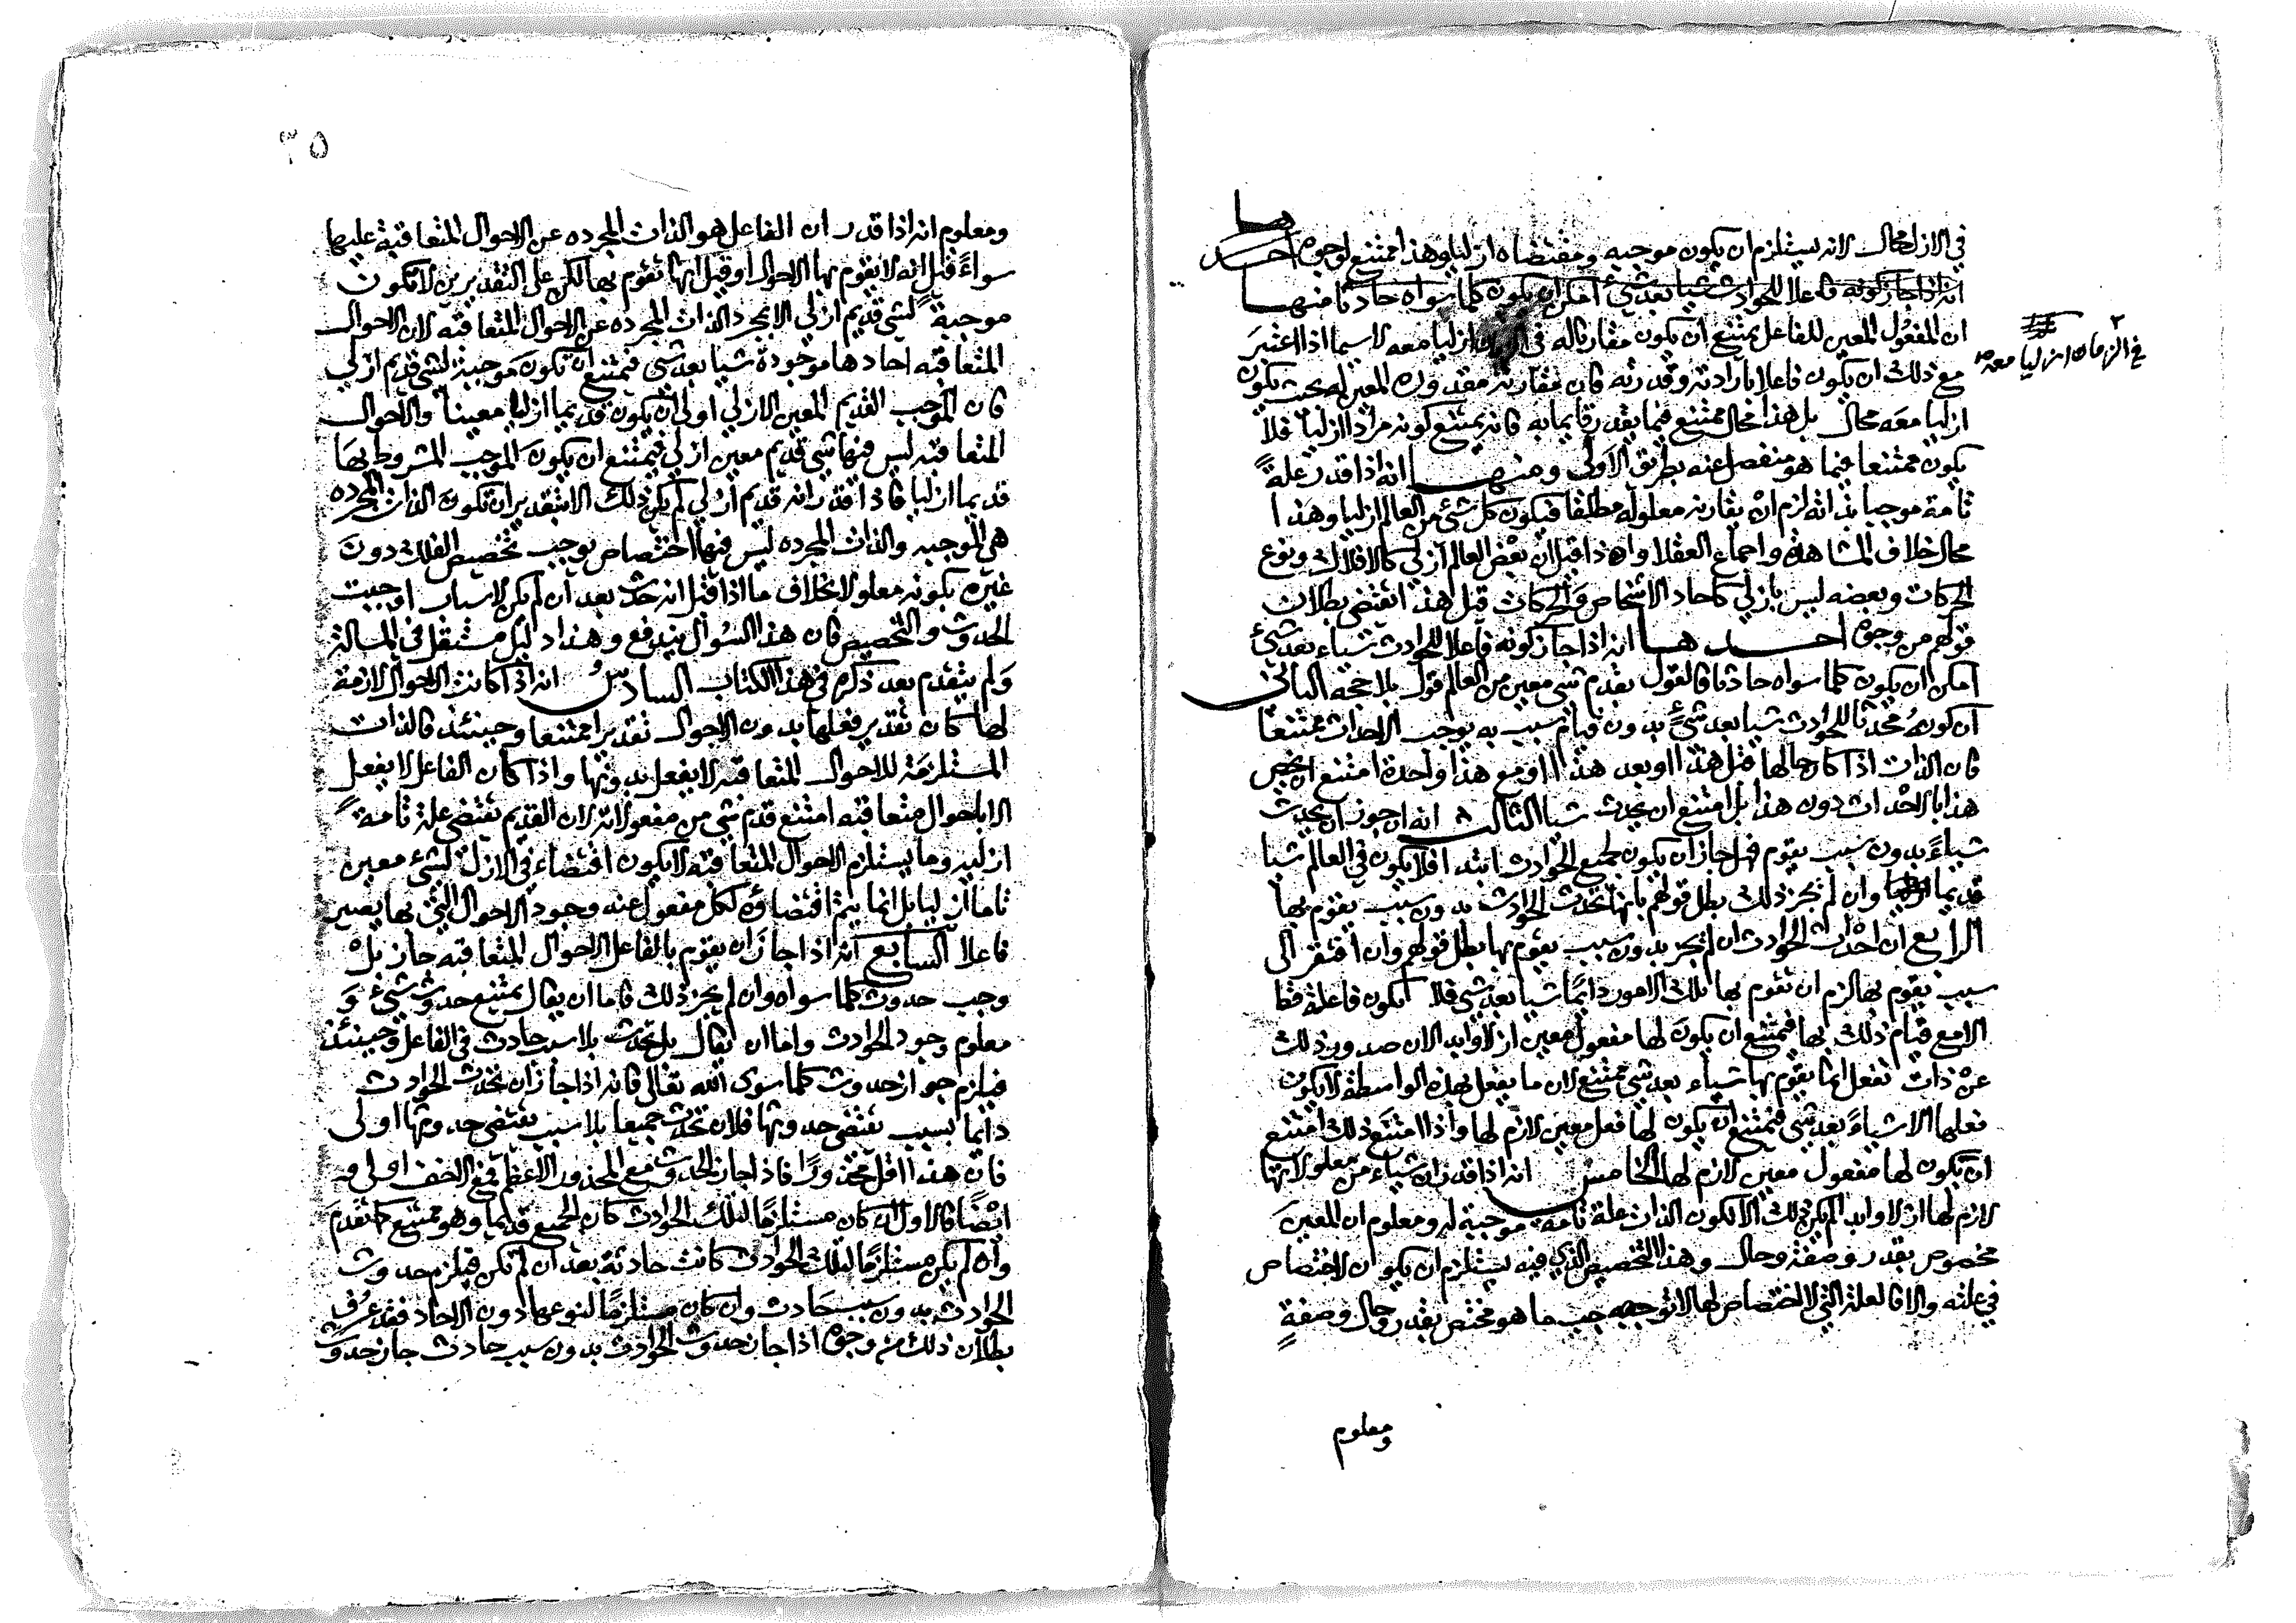 في الازل محال لانه يستلزم ان يكون موجبه ومقتضاه ازليا وهذا ممتنع لوجوه احدها
انه اذا جاز كونه فاعلا للحوادث شيا بعد شئ امكن ان يكون كلما سواه حادثا منها
ان المفعول المعين للفاعل يمتنع ان يكون مقارنا له في الزمان ازليا معه لاسيما اذا اعتبر
في الزمان ازليا معه صح
مع ذلك ان يكون فاعلا بارادته وقدرته فان مقارنة مقدوره المعين له بحيث يكون
ازليا معه محال بل هذا محال ممتنع فيما يقدر قايما به فانه يمتنع كونه مرادا ازليا فلا
يكون ممتنعا فيما هو منفصل عنه بطريق الاولى ومنها انه اذا قدر علة
تامة موجبا بذاته لزم ان يقارنه معلوله مطلقا فيكون كل شئ من العالم ازليا وهذا
محال خلاف المشاهدة واجماع العقلا وان ذا قيل ان بعض العالم ازلي كالافلاك ونوع
الحركات وبعضه ليس بازلي كاحاد الاشخاص والحركات قيل هذا يقتضي بطلان
قولهم من وجوه احدها انه اذا جاز كونه فاعلا للحوادث شياء بعد شئ
امكن ان يكون كلما سواه حادثا فالقول بقدم شي معين من العالم قول بلا حجة الثاني
ان كونه محدثا للحوادث شيا بعد شئ بدون قيام سبب به يوجب الاحداث ممتنعا
فان الذات اذا كان حالها قبل هذا او بعد هذا او مع هذا واحدة امتنع ان يخص
هذا بالاحداث دون هذا بل امتنع ان يحدث شيا الثالث انه ان جوز ان يحدث
شياء بدون سبب يقوم فهل جاز ان يكون لجميع الحوادث ابتدا فلا يكون في العالم شيا
قديما ازليا وان لم يجز ذلك بطل قولهم بانها تحدث الحوادث بدون سبب يقوم بها
الرابع ان احداث الحوادث ان لم يجز بدون سبب يقوم بها بطل قولهم وان افتقر الى
سبب يقوم بها لزم ان تقوم بها تلك الامور دايما شيا بعد شي فلا تكون فاعلة قط
الا مع قيام ذلك بها فيمتنع ان يكون لها مفعول معين ازلا وابدا لان صدور ذلك
عن ذات تفعل انما يقوم بها شياء بعد شي ممتنع لان ما يفعل بهذه الواسطة لا يكون
فعلها الا شياء بعد شي فيمتنع ان يكون لها فعل معين لازم لها واذا امتنع ذلك امتنع
ان يكون لها مفعول معين لازم لها الخامس انه اذا قدر ان شياء من معلولاتها
لازم لها ازلا وابدا لم يكن ذلك الا لكون الذات علة تامة موجبة له ومعلوم ان المعين
مخصوص بقدر وصفة وحال وهذا التخصيص الذي فيه يستلزم ان يكون الاختصاص
في علته والا فالعلة التي لا اختصاص لها لا توجب ما هو مختص بقدر وحال وصفة
ومعلوم
٣٥
ومعلوم انه اذا قدر ان الفاعل هو الذات المجرده عن الاحوال المتعاقبة عليها
سواء قيل انه لا يقوم بها الاحوال او قيل انها تقوم بها لكن على التقديرين لا تكون
موجبة لشي قديم ازلي الا بمجرد الذات المجرده عن الاحوال المتعاقبه لان الاحوال
المتعاقبه احادها موجودة شيا بعد شي فيمتنع ان تكون موجبة لشي قديم ازلي
فان الموجب القديم المعين الازلي اولى ان يكون قديما ازليا معينا والاحوال
المتعاقبه ليس فيها شي قديم معين ازلي فيمتنع ان يكون الموجب المشروط بها
قديما ازليا فاذا قدر انه قديم ازلي لم يكن ذلك الا بتقدير ان تكون الذات المجرده
هي الموجبه والذات المجرده ليس فيها اختصاص يوجب تخصيص الفلك دون
غيره بكونه معلولا بخلاف ما اذا قيل انه حدث بعد ان لم يكن لاسباب اوجبت
الحدوث والتخصيص فان هذا السؤال يندفع وهذا دليل مستقل في المسالة
ولم يتقدم بعد ذكره في هذا الكتاب السادس انه اذا كانت الاحوال لازمة
لها كان تقدير فعلها بدون الاحوال تقديرا ممتنعا وحينئذ فالذات
المستلزمة للاحوال المتعاقبه لا يفعل بدونها واذا كان الفاعل لا يفعل
الا باحوال متعاقبه امتنع قدم شي من مفعولاته لان القديم يقتضي علة تامة
ازلية وما يستلزم الاحوال المتعاقبه لا يكون اقتضاء في الازل لشئ معين
تاما ازليا بل انما يتم اقتضاؤه لكل مفعول عند وجود الاحوال التي بها يصير
فاعلا السابع انه اذا جاز ان يقوم بالفاعل الاحوال المتعاقبه جاز بل
وجب حدوث كلما سواه وان لم يجز ذلك فاما ان يقال يمتنع حدوث شئ و
معلوم وجود الحوادث واما ان يقال بل تحدث بلا سبب حادث في الفاعل وحينئذ
فيلزم جواز حدوث كلما سوى الله تعالى فانه اذا جاز ان تحدث الحوادث
دايما بسبب يقتضي حدوثها فلان تحدث جميعا بلا سبب يقتضي حدوثها اولى
فان هذا اقل محذورا فاذا جاز الحدوث مع المحذور الاعظم فمع الاخف اولى و
ايضا فالاول ان كان مستلزما لتلك الحوادث كان الجميع قديما وهو ممتنع كما تقدم
وان لم يكن مستلزما لتلك الحوادث كانت حادثة بعد ان لم تكن فيلزم حدوث
الحوادث بدون سبب حادث وان كان مستلزما لنوعها دون الاحاد فقد عرف
بطلان ذلك من وجوه اذا جاز حدوث الحوادث بدون سبب حادث جاز حدوث